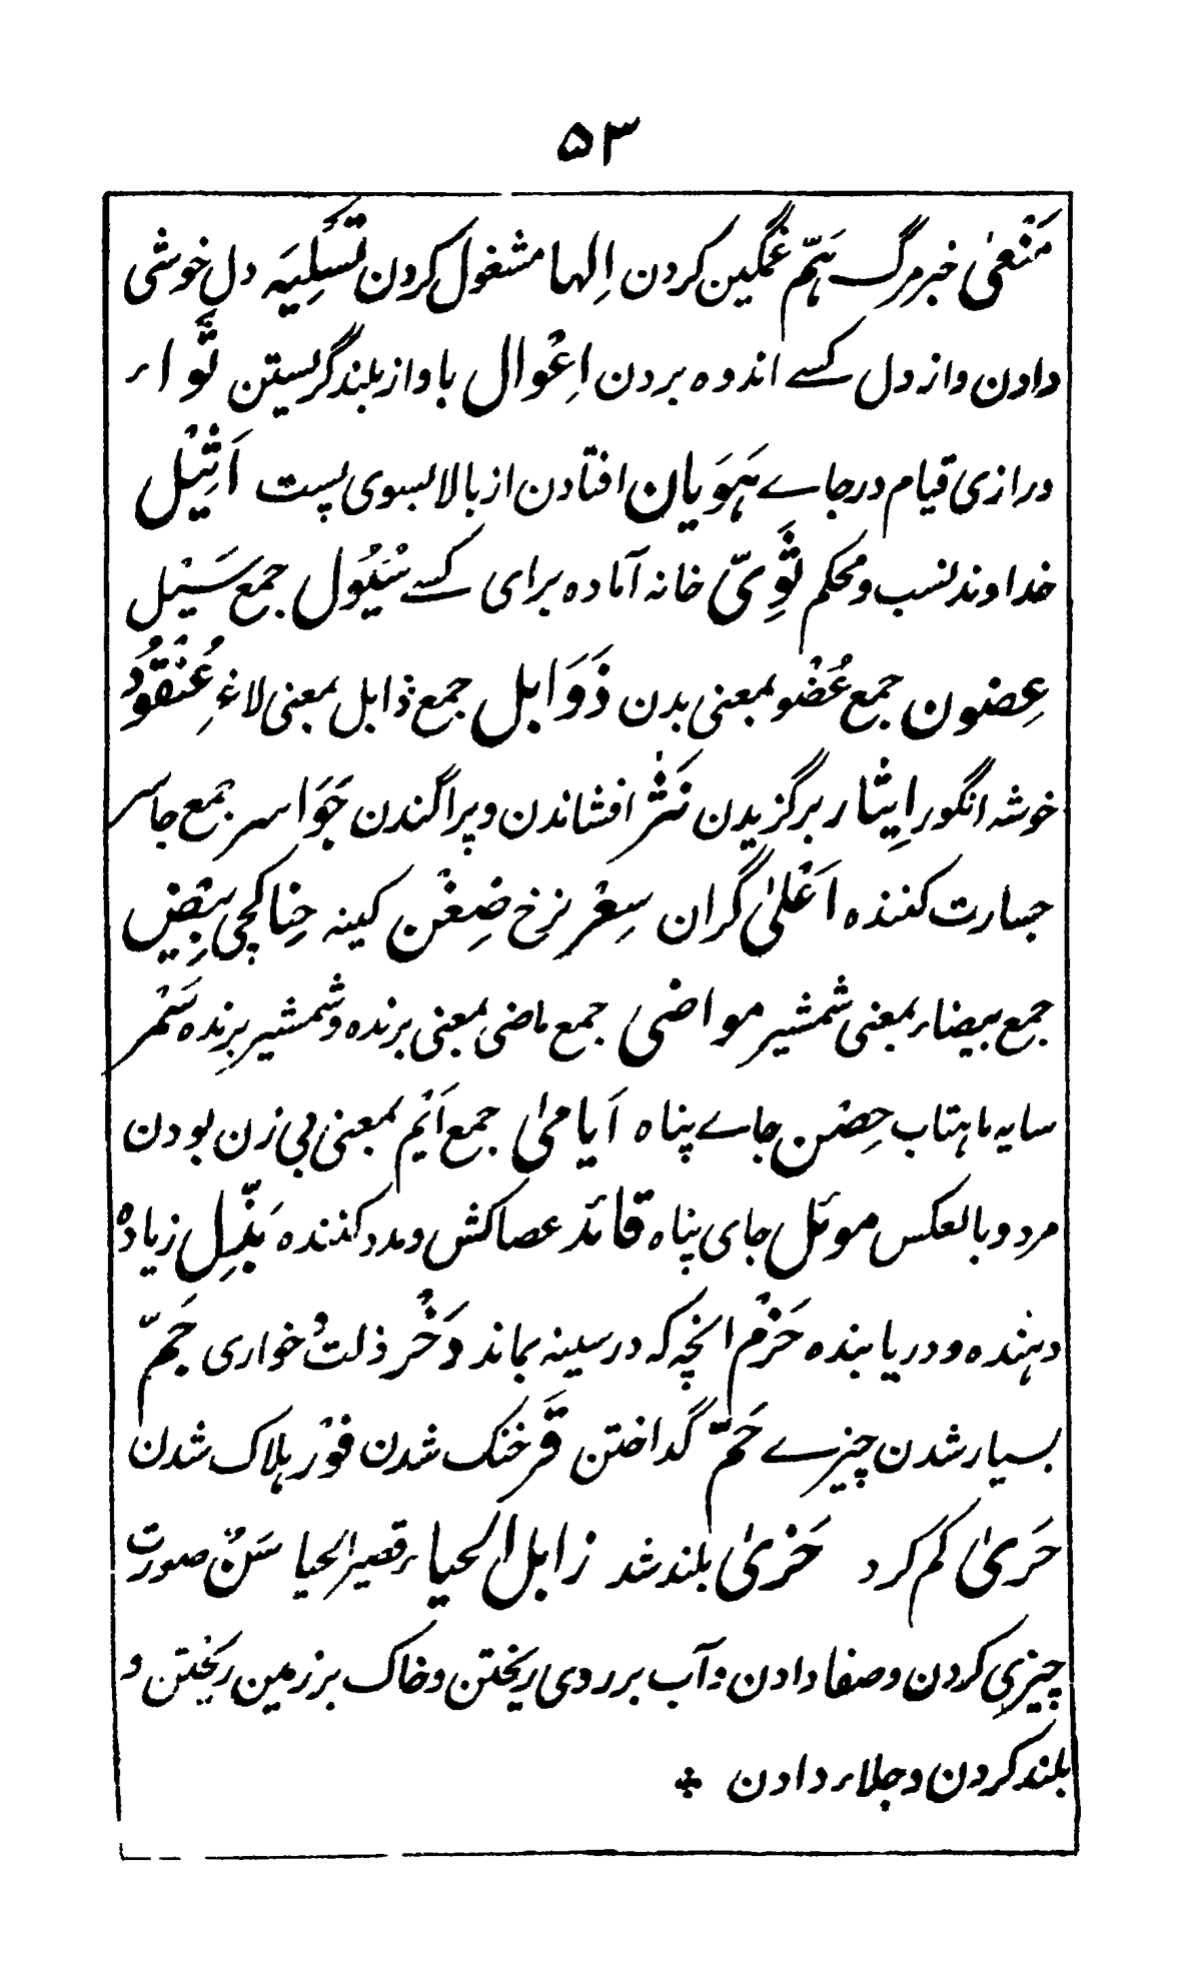 ۵۳
مَنْعیٰ خبر مرگ ہَمّ غمگین کردن اِلہا مشغول کردن تَسْلِیَہ دل خوشی
دادن واز دل کسے اندوہ بردن اِعْوال باواز بلند گریستن ثَواء
درازی قیام درجاے ہَوَیان افتادن از بالا بسوی پست اَثِیْل
خداوند نسب و محکم ثَوِیّ خانہ آمادہ برای کسے سُیُول جمع سَیْل
عِضون جمع عُضْو بمعنی بدن ذَوَابل جمع ذابل بمعنی لاغِر عُنْقُوْد
خوشہ انگور اِیثار برگزیدن نَثْر افشاندن و پراگندن جَوَاسر جمع جاسر
جسارت کنندہ اَغْلیٰ گران سِعْر نرخ ضِغْن کینہ حِنا کجی بِیْض
جمع بیضاء بمعنی شمشیر مواضی جمع ماضی بمعنی برندہ و شمشیر برندہ سَمْر
سایہ ماہتاب حِصْن جاے پناہ اَیامیٰ جمع اَیْم بمعنی بی زن بودن
مرد و بالعکس موئل جای پناہ قائد عصاکش و مدد کنندہ زیادہ
دہندہ و دریابندہ حَزْم انچہ کہ در سینہ بماند دَخْر ذلت و خواری جَمّ
بسیار شدن چیزے حَمّ گداختن قَر خنک شدن فَوْر ہلاک شدن
حَریٰ کم کرد حَزیٰ بلند شد زابل الحیاء قصیر الحیا سَنّ صورت
چیزی کردن و صفا دادن و آب بر روی ریختن و خاک بر زمین ریختن و
بلند کردن و جلاء دادن ٭